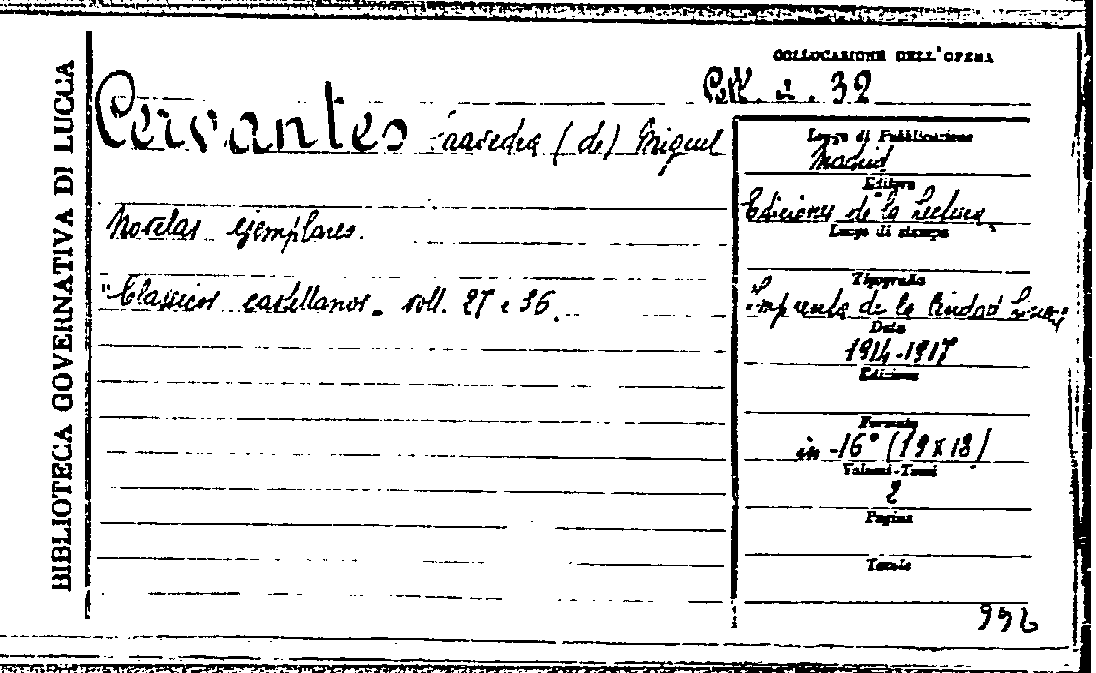 BIBLIOTECA GOVERNATIVA DI LUCCA
COLLOCAZIONE DELL'OPERA
Coll. 2. 32
Cervantes Saavedra (de) Miguel
Novelas ejemplares.
"Classicos castellanos. voll. 27 e 36.
Luogo di Pubblicazione
Madrid
Editore
Ediciones de la Lectura
Luogo di stampa
Tipografia
Imprenta de la Ciudad
Data
1914-1917
Edizione
Formato
in-16° (19x13)
Volumi-Tomi
2
Pagine
Tavole